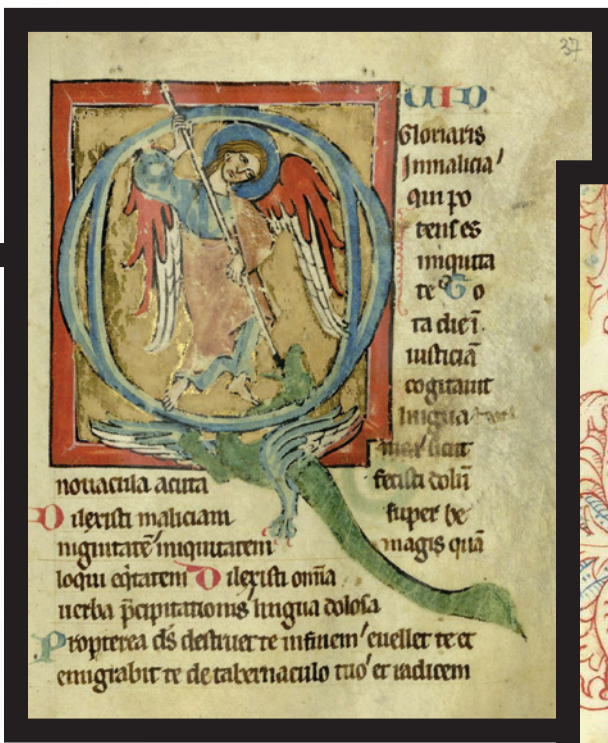 37
QUID
Gloriaris
Inmalicia'
qui po
tens es
iniquita
te To
ta die ī
iusticiā
cogitauit
lingua tua
fecisti dolū
nouacula acuta
super be
Dilexisti maliciam
magis quā
nignitatē' iniquitatem
loqui eq̄tatem Dilexisti om̄ia
uerba p̄cipitationis lingua dolosa
Propterea d̄s destruet te infinem' euellet te et
emigrabit te de tabernaculo tuo' et radicem